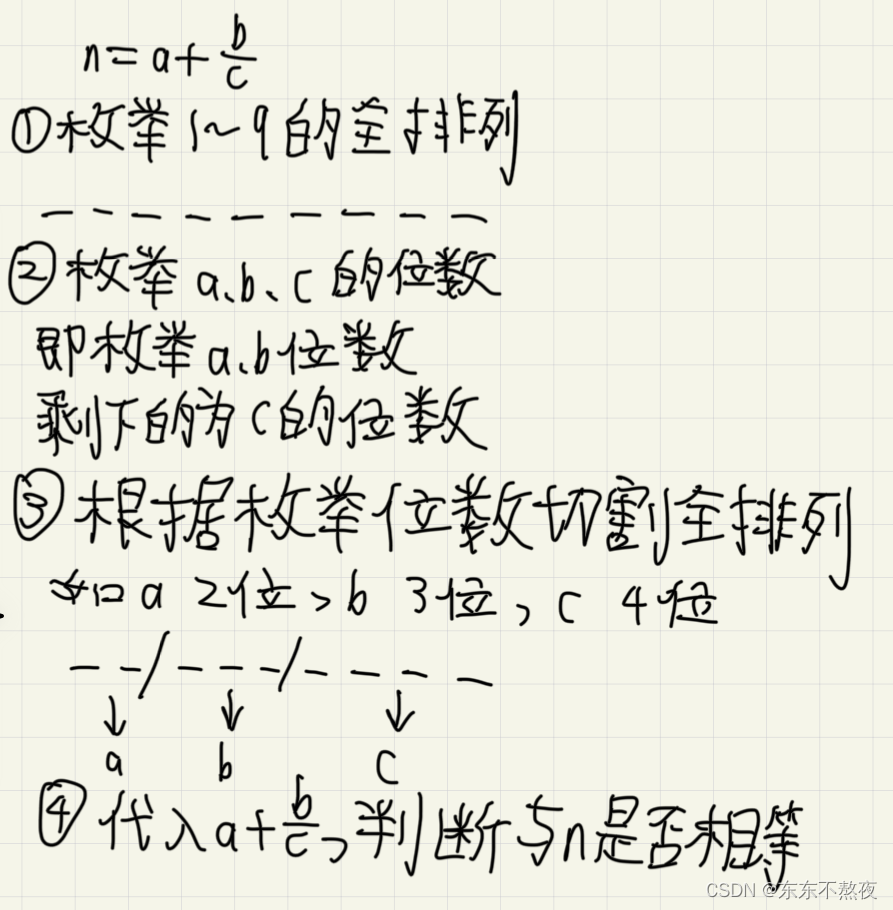 n=a+b/c
①枚举1~9的全排列
_ _ _ _ _ _ _ _ _
②枚举a、b、c的位数
即枚举a、b位数
剩下的为c的位数
③根据枚举位数切割全排列
如a 2位,b 3位,c 4位
_ _/_ _ _/_ _ _ _
↓ ↓ ↓
a b c
④代入a+b/c,判断与n是否相等
CSDN @东东不熬夜